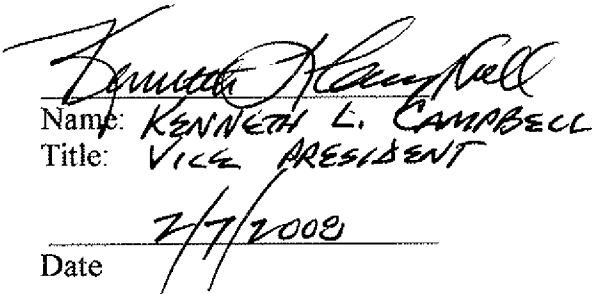 Kenneth L Campbell
Name: KENNETH L. CAMPBELL
Title: VICE PRESIDENT
2/7/2008
Date